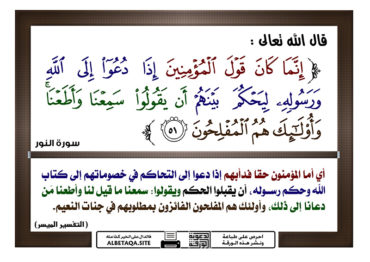 قال الله تعالى :
﴿ إِنَّمَا كَانَ قَوْلَ الْمُؤْمِنِينَ إِذَا دُعُوٓا۟ إِلَى اللَّهِ
وَرَسُولِهِ لِيَحْكُمَ بَيْنَهُمْ أَن يَقُولُوا۟ سَمِعْنَا وَأَطَعْنَا ۚ
وَأُو۟لَٰٓئِكَ هُمُ الْمُفْلِحُونَ ٥١ ﴾
سورة النور
أي أما المؤمنون حقا فدأبهم إذا دعوا إلى التحاكم في خصوماتهم إلى كتاب
الله وحكم رسوله، أن يقبلوا الحكم ويقولوا: سمعنا ما قيل لنا وأطعنا مَن
دعانا إلى ذلك، وأولئك هم المفلحون الفائزون بمطلوبهم في جنات النعيم.
(التفسير الميسر)
احرص على طباعة
ونشر هذه الورقة
ALBETAQA.SITE